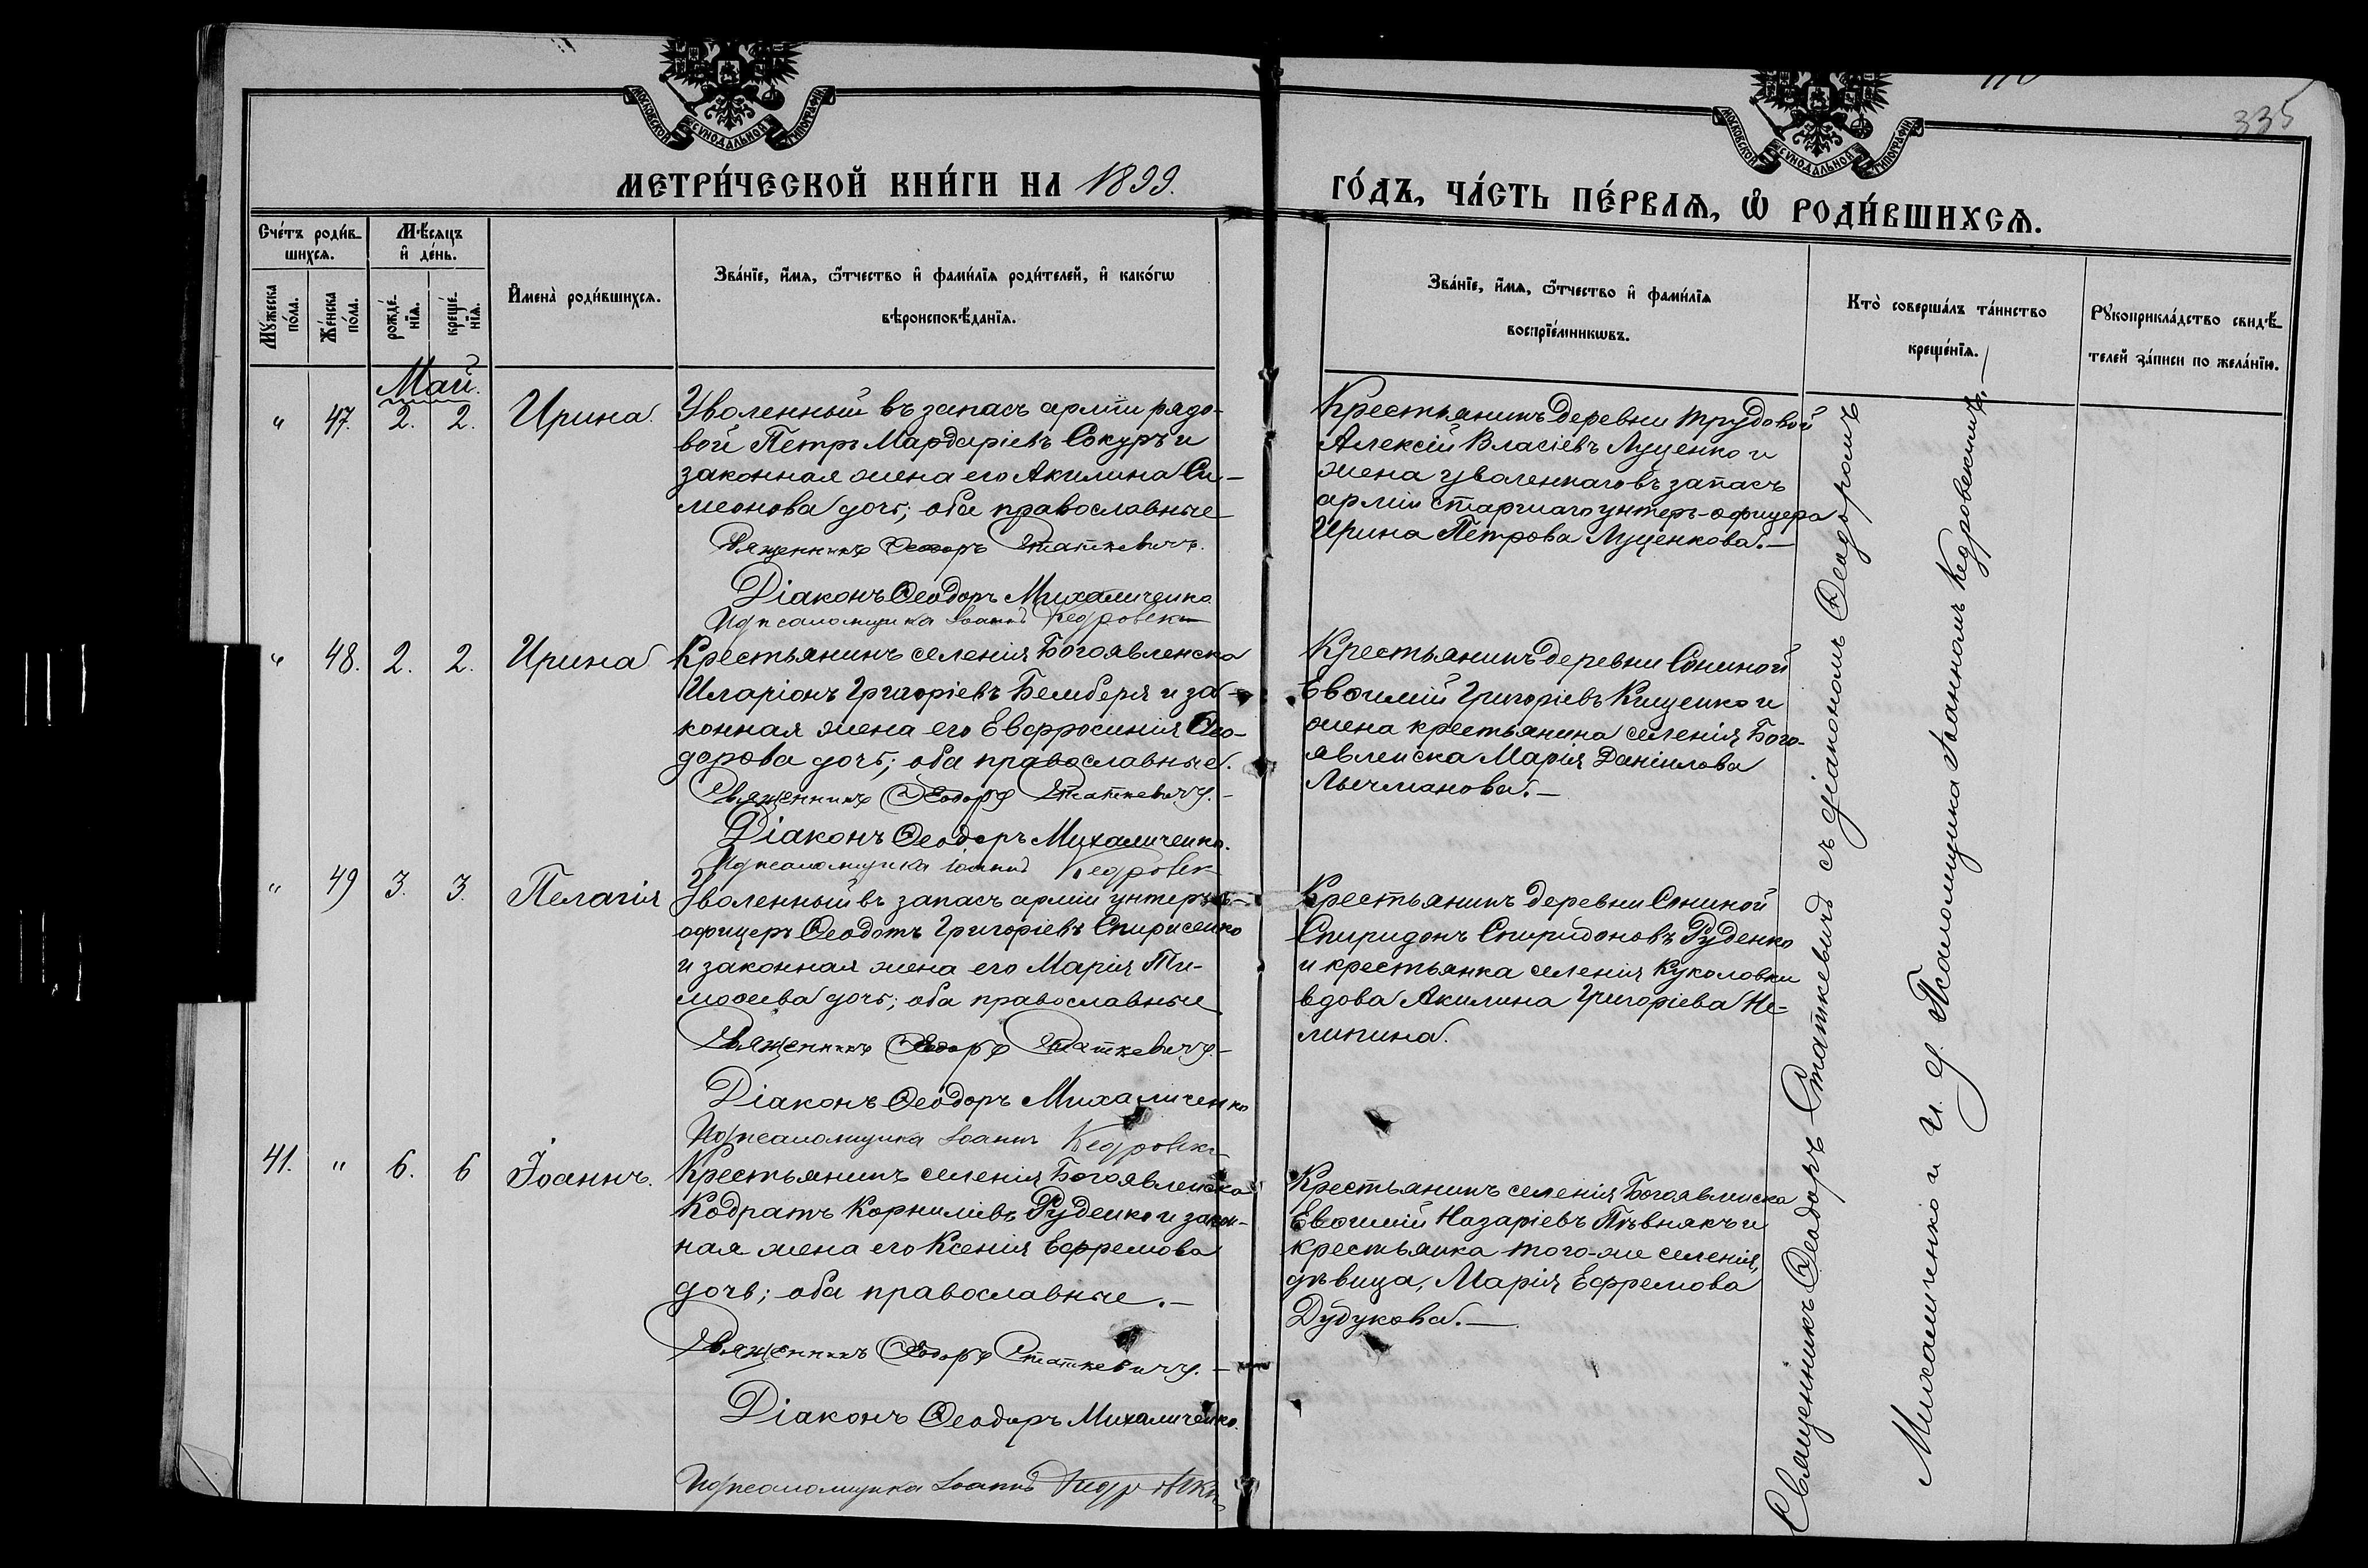 МОСКОВСКОЙ СѴНОДАЛЬНОЙ ТИПОГРАФІИ
МОСКОВСКОЙ СѴНОДАЛЬНОЙ ТИПОГРАФІИ
335
МЕТРИ́ЧЕСКОЙ КНИ́ГИ НА 1899.
ГО́ДЪ, ЧА́СТЬ ПЕ́РВАѦ, Ѡ҆ РОДИ́ВШИХСѦ.
Сче́тъ роди́в-
шихсѧ.
Мѣ́сѧцъ
и҆ де́нь.
Мꙋ́жеска
по́ла.
Же́нска
по́ла.
рожде́-
нїѧ.
креще́-
нїѧ.
И҆мена̀ роди́вшихсѧ.
Зва́нїе, и҆́мѧ, ѻ҆́тчество и҆ фами́лїѧ роди́телей, и҆ како́гѡ
вѣроисповѣ́данїѧ.
Зва́нїе, и҆́мѧ, ѻ҆́тчество и҆ фами́лїѧ
воспрїе́мникѡвъ.
Кто̀ соверша́лъ та́инство
креще́нїѧ.
Рꙋкоприкла́дство свидѣ́-
телей за́писи по жела́нїю.
Май.
" 47. 2. 2. Ирина.
Уволенный въ запасъ арміи рядо-
вой Петръ Мардаріевъ Сокуръ и
законная жена его Акилина Си-
меонова дочь; оба православные
Священникъ Ѳеодоръ Статкевичъ.
Діаконъ Ѳеодоръ Михаличенко
И д псаломщика Іоаннъ Кедровскій
Крестьянинъ деревни Трудовой
Алексій Власіевъ Луценко и
жена уволеннаго въ запасъ
арміи старшаго унтеръ-офицера
Ирина Петрова Луценкова.—
" 48. 2. 2. Ирина
Крестьянинъ селенія Богоявленска
Иларіонъ Григоріевъ Бемберя и за-
конная жена его Евфросинія Ѳео-
дорова дочь; оба православные.
Священникъ Ѳеодоръ Статкевичъ.—
Діаконъ Ѳеодоръ Михаличенко.
И д псаломщика Іоаннъ Кедровск
Крестьянинъ деревни Сониной
Евѳимій Григоріевъ Кищенко и
жена крестьянина селенія Бого-
явленска Марія Даніилова
Лычманова.—
" 49 3. 3. Пелагія
Уволенный въ запасъ арміи унтеръ-
офицеръ Ѳеодотъ Григоріевъ Спирисенко
и законная жена его Марія Ти-
моѳеева дочь; оба православные
Священникъ Ѳеодоръ Статкевичъ.—
Діаконъ Ѳеодоръ Михаличенко
И д псаломщика Іоаннъ Кедровскі
Крестьянинъ деревни Сониной
Спиридонъ Спиридоновъ Руденко
и крестьянка селенія Куколовки
вдова Акилина Григоріева Не-
липина.
41. " 6. 6 Іоаннъ.
Крестьянинъ селенія Богоявленска
Кодратъ Корниліевъ Руденко и закон-
ная жена его Ксенія Ефремова
дочь; оба православные.—
Священникъ Ѳеодоръ Статкевичъ.—
Діаконъ Ѳеодоръ Михаличенко.
И д псаломщика Іоаннъ Кедровскій
Крестьянинъ селенія Богоявленска
Евѳимій Назаріевъ Пѣвнякъ и
крестьянка того-же селенія,
дѣвица, Марія Ефремова
Дудукова.—
Священникъ Ѳеодоръ Статкевичъ съ діакономъ Ѳеодоромъ
Михаличенко и и. д. Псаломщика Іоанномъ Кедровскимъ.—